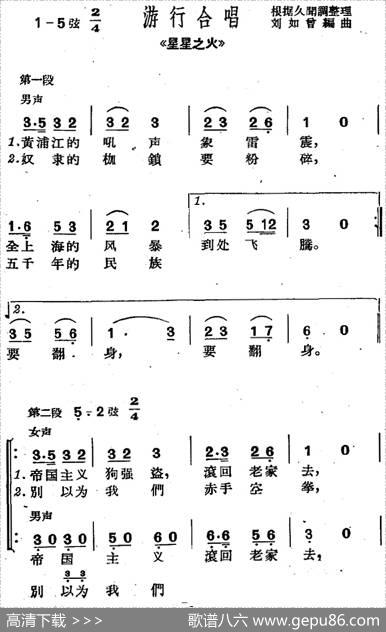 1-5弦 2/4 游行合唱 根据久聞調整理
刘如曾編曲
《星星之火》
第一段
男声
3·5 3 2 3 2 3 2 3 2 6 1 0
1.黄浦江的 吼 声 象 雷 震，
2.奴 隶的 枷 鎖 要 粉 碎，
1.
1·6 5 3 2 1 2 3 5 5 12 3 0
全上 海的 风 暴 到处 飞 騰。
五千 年的 民 族
2.
3 5 5 6 1· 3 2 3 1 7 6 0
要 翻 身， 要 翻 身。
第二段 5-2弦 2/4
女声
3·5 3 2 3 2 3 2·3 2 6 1 0
1.帝国主义 狗强 盗， 滾回 老家 去，
2.別 以为 我 們 赤手 空 拳，
男声
3 0 3 0 5 0 6 0 6·6 5 6 3 0
帝 国 主 义 滾回 老家 去，
3 3
別 以为 我 們
高清下载 >>> 歌谱八六 www.gepu86.com